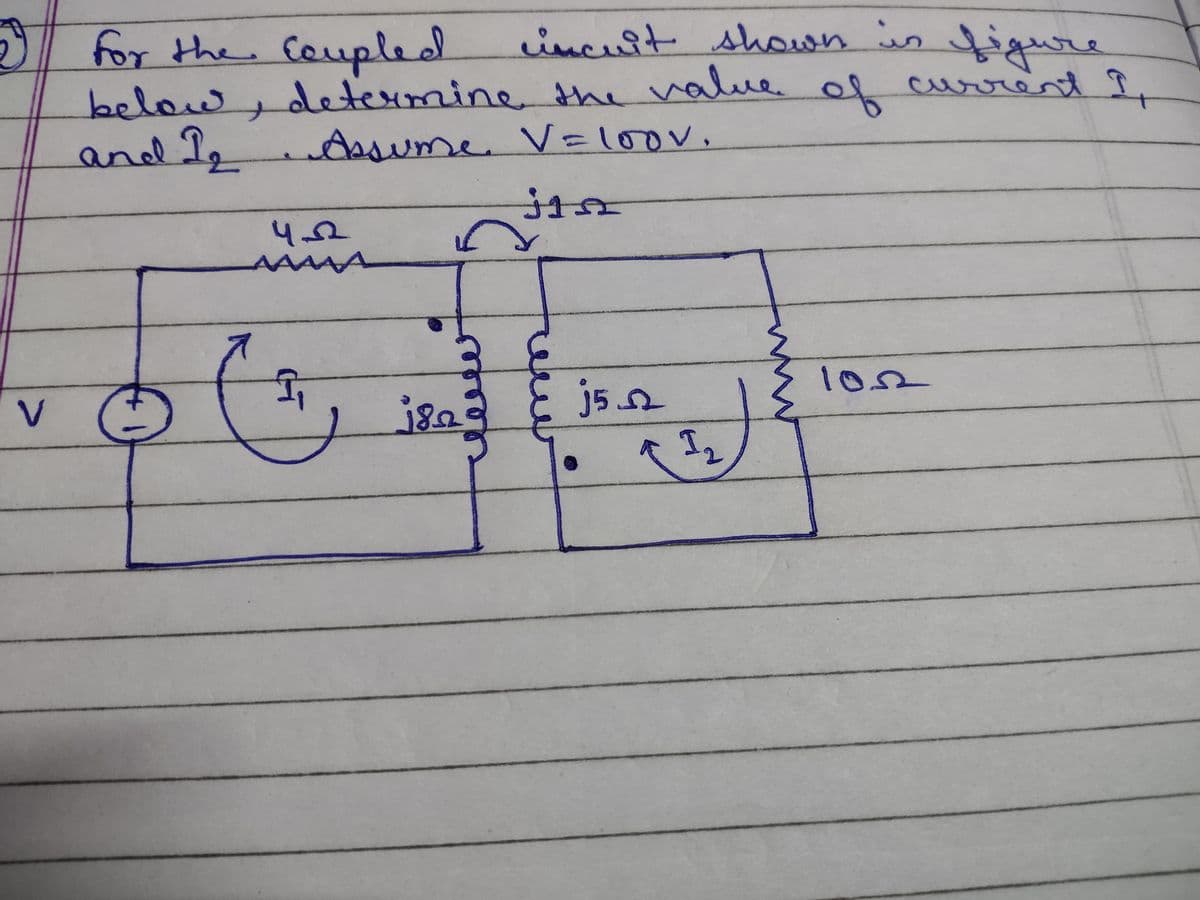 2) for the Coupled circuit shown in figure
below, determine the value of current I₁
and I₂ . Assume V=100V.
j1Ω
4Ω
V
+
−
I₁
j8Ω
j5Ω
I₂
10Ω